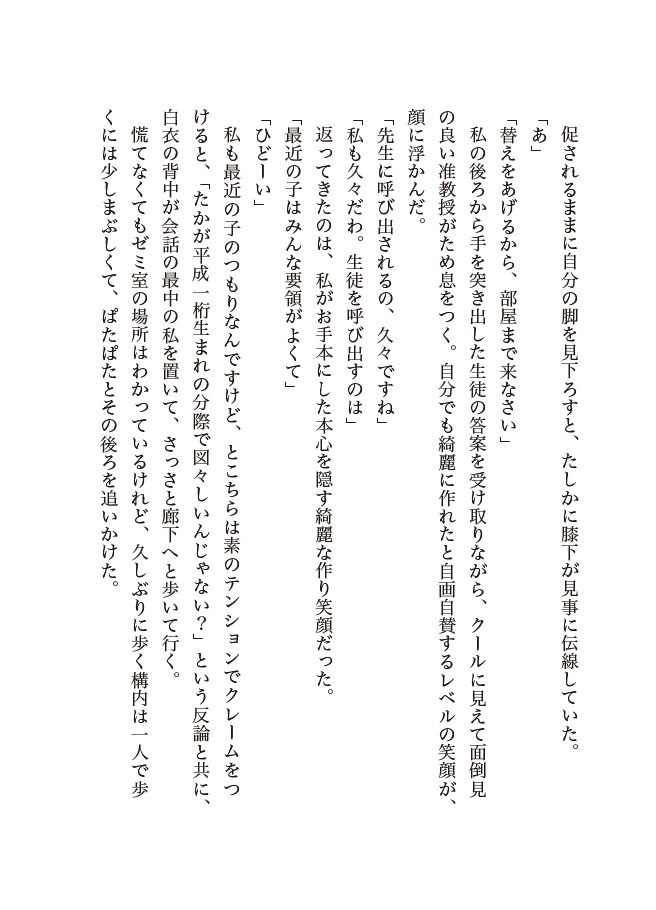 促されるままに自分の脚を見下ろすと、たしかに膝下が見事に伝線していた。
「あ」
「替えをあげるから、部屋まで来なさい」
　私の後ろから手を突き出した生徒の答案を受け取りながら、クールに見えて面倒見
の良い准教授がため息をつく。自分でも綺麗に作れたと自画自賛するレベルの笑顔が、
顔に浮かんだ。
「先生に呼び出されるの、久々ですね」
「私も久々だわ。生徒を呼び出すのは」
　返ってきたのは、私がお手本にした本心を隠す綺麗な作り笑顔だった。
「最近の子はみんな要領がよくて」
「ひどーい」
　私も最近の子のつもりなんですけど、とこちらは素のテンションでクレームをつ
けると、「たかが平成一桁生まれの分際で図々しいんじゃない？」という反論と共に、
白衣の背中が会話の最中の私を置いて、さっさと廊下へと歩いて行く。
　慌てなくてもゼミ室の場所はわかっているけれど、久しぶりに歩く構内は一人で歩
くには少しまぶしくて、ぱたぱたとその後ろを追いかけた。